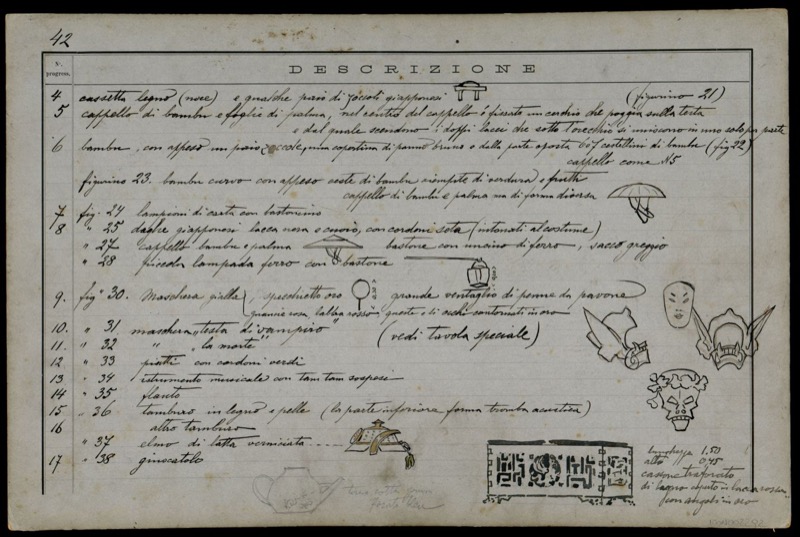 42
N.
progress.
DESCRIZIONE
4 cassetta legno (noce) e qualche paio di zoccoli giapponesi (figurino 21)
5 cappello di bambu e foglie di palma, nel centro del cappello è fissato un cerchio che poggia sulla testa
e dal quale scendono i doppi lacci che sotto l'orecchio si uniscono in uno solo per parte
6 bambu, con appeso un paio zoccole, una copertina di panno bruno e dalla parte opposta 6 o 7 cestellini di bambu (fig 22)
cappello come N5
figurino 23. bambu curvo con appeso ceste di bambu riempite di verdura e frutta
cappello di bambu e palma ma di forma diversa
7 fig. 24 lampioni di carta con bastoncino
8 " 25 daghe giapponesi lacca nera e cuoio, con cordoni seta (intonati al costume)
" 27 Cappello bambu e palma bastone con uncino di ferro, sacco greggio
" 28 piccola lampada ferro con bastone
9. fig. 30. Maschera gialla, specchietto oro grande ventaglio di penne da pavone
guancie rosa, labbra rosso, queste e li occhi contornati in oro
10. " 31. maschera "testa di vampiro"
11. " 32 " "la morte" (vedi tavola speciale)
12 " 33 piatti con cordoni verdi
13 " 34 istrumento musicale con tam tam sospesi
14 " 35 flauto
15 " 36 tamburo in legno e pelle (la parte inferiore forma tromba acustica)
16 altro tamburo
" 37 elmo di latta verniciata
17 " 38 giocattolo
lunghezza 1,50
alto 0,45
cassone traforato
di legno dipinto in lacca rossa
con angoli in oro